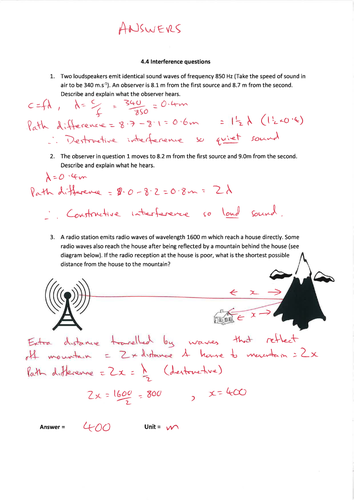 ANSWERS
4.4 Interference questions
1. Two loudspeakers emit identical sound waves of frequency 850 Hz (Take the speed of sound in
air to be 340 m.s⁻¹). An observer is 8.1 m from the first source and 8.7 m from the second.
Describe and explain what the observer hears.
c = fλ , λ = c/f = 340/850 = 0.4m
Path difference = 8.7 - 8.1 = 0.6m = 1½ λ (1½ × 0.4)
∴ Destructive interference so quiet sound
2. The observer in question 1 moves to 8.2 m from the first source and 9.0m from the second.
Describe and explain what he hears.
λ = 0.4m
Path difference = 9.0 - 8.2 = 0.8m = 2λ
∴ Constructive interference so loud sound.
3. A radio station emits radio waves of wavelength 1600 m which reach a house directly. Some
radio waves also reach the house after being reflected by a mountain behind the house (see
diagram below). If the radio reception at the house is poor, what is the shortest possible
distance from the house to the mountain?
← x →
← x →
Extra distance travelled by waves that reflect
off mountain = 2 × distance of house to mountain = 2x
Path difference = 2x = λ/2 (destructive)
2x = 1600/2 = 800 , x = 400
Answer = 400 Unit = m